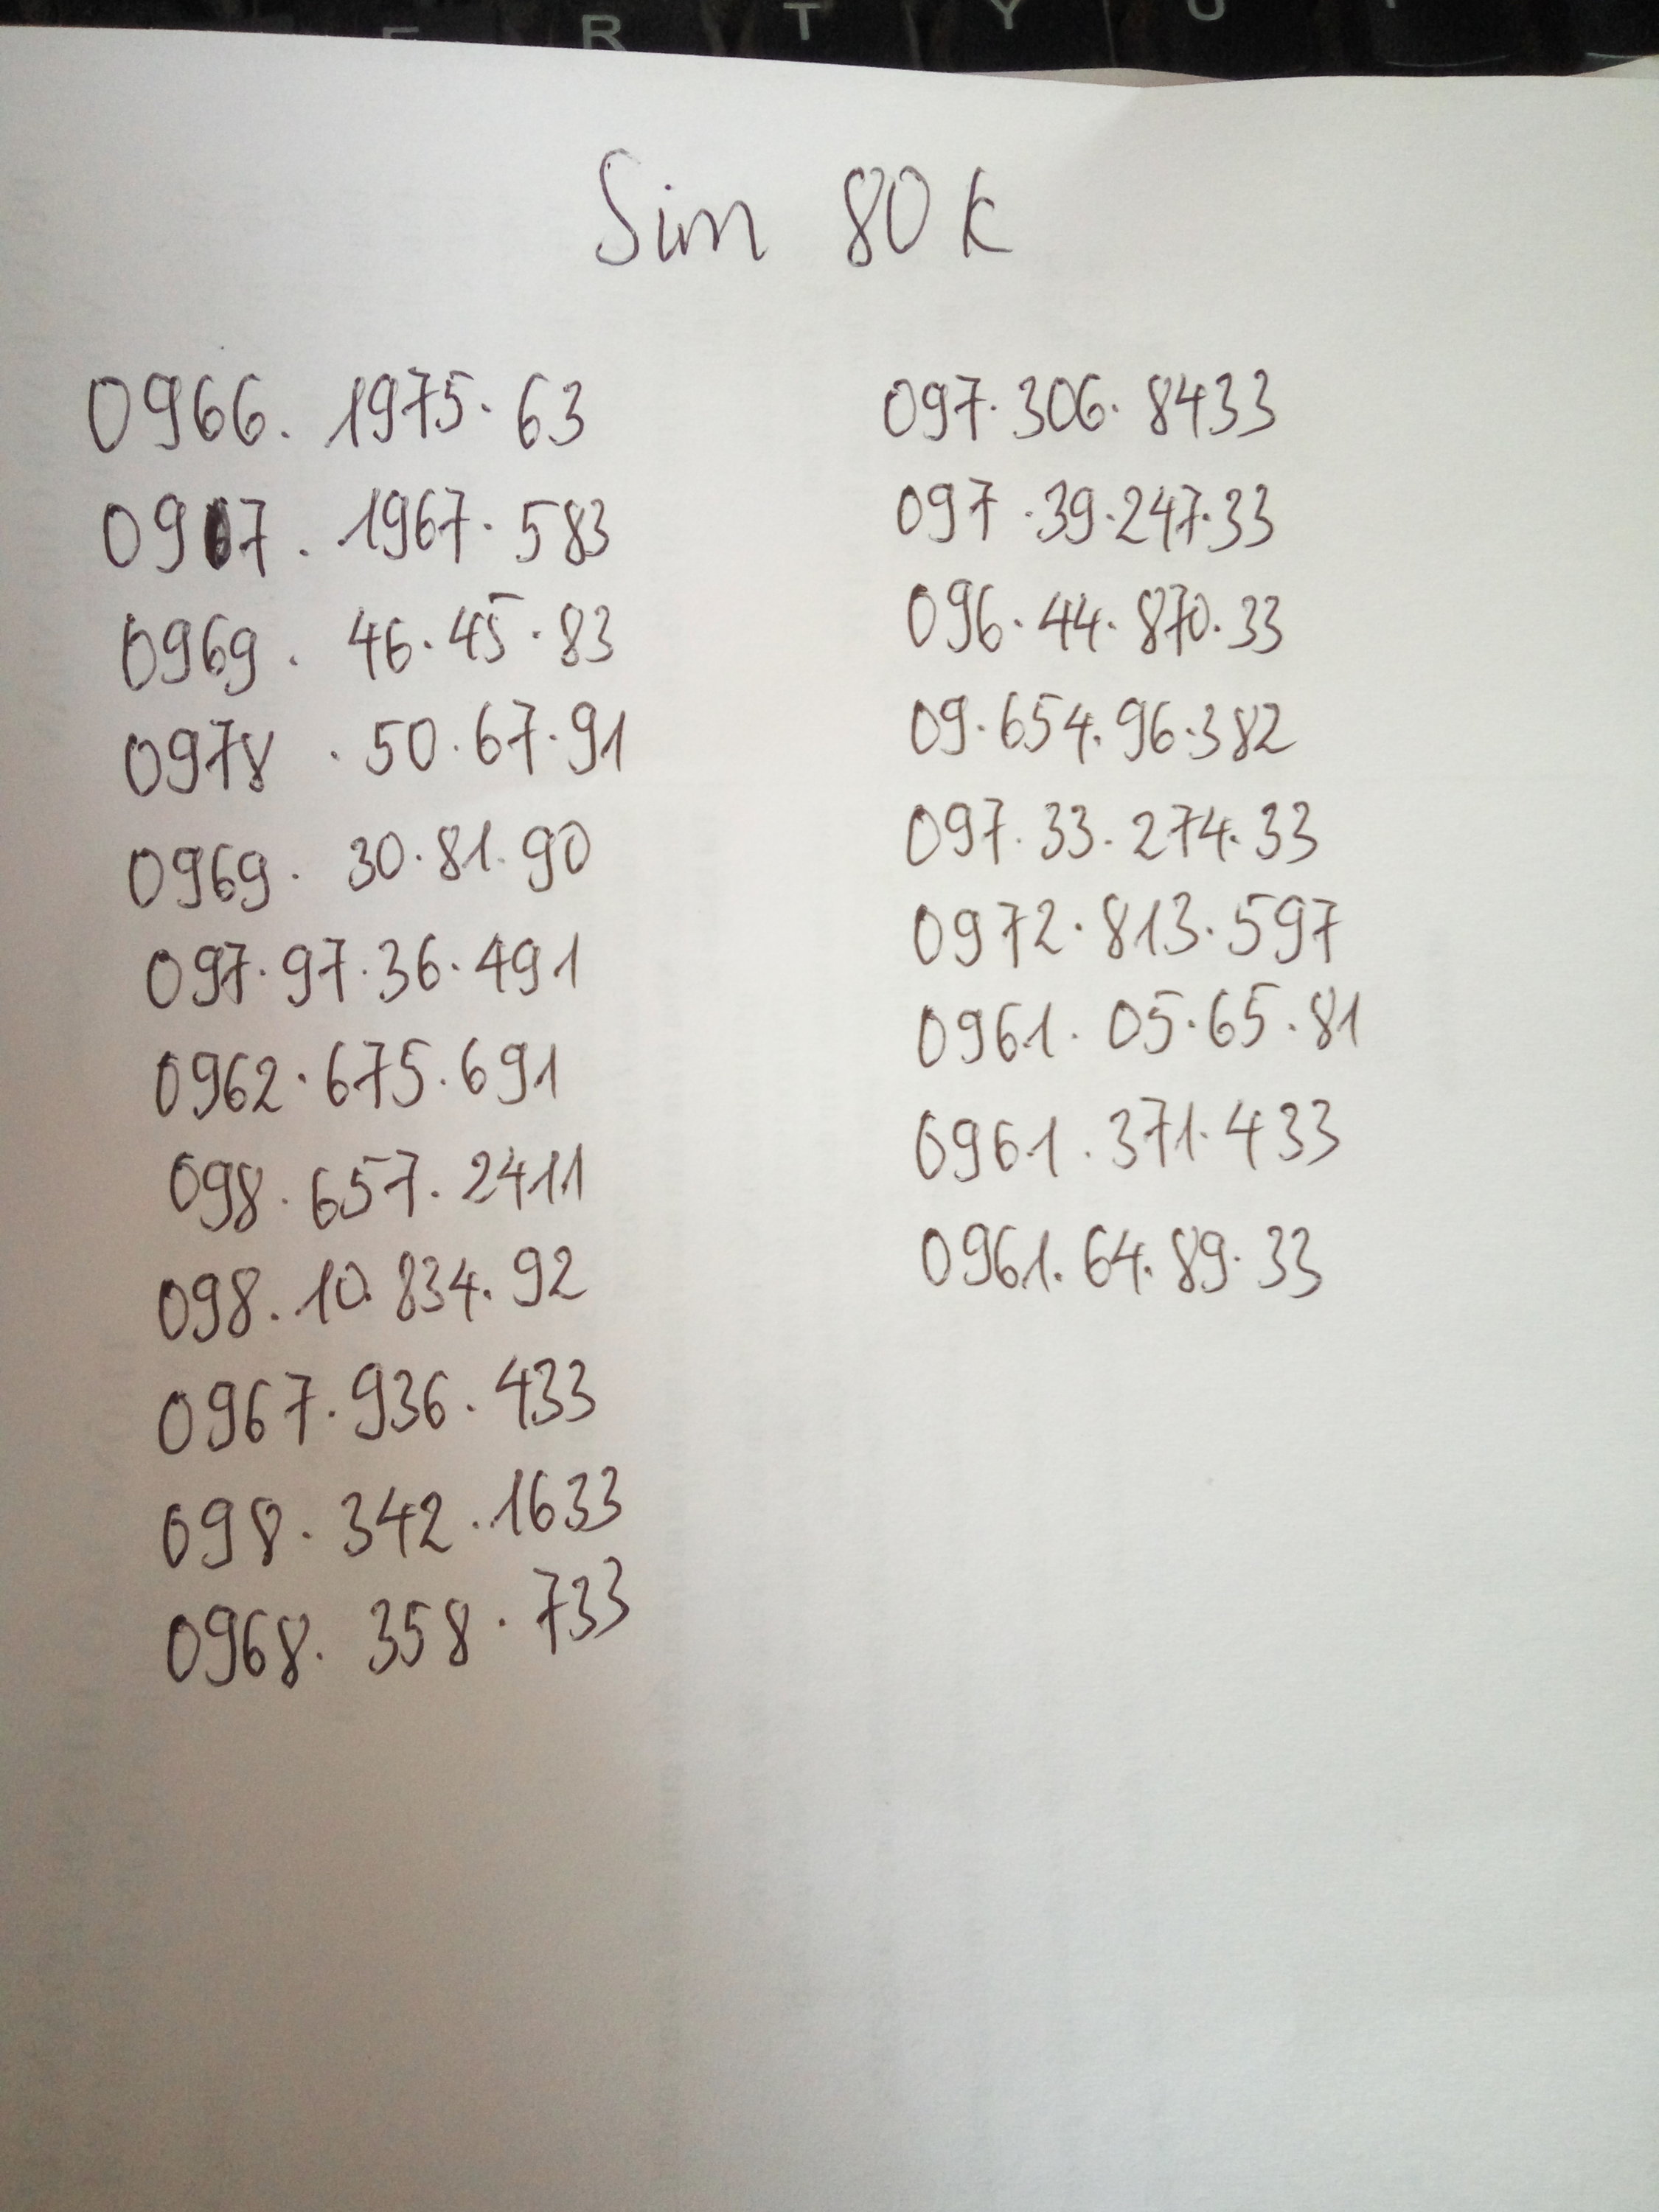 E R T Y U
Sim 80k
0966. 1975. 63
0967. 1967. 583
0969. 46. 45. 83
0978 .50.67.91
0969. 30.81.90
097.97.36.491
0962.675.691
098.657.2411
098.10.834.92
0967.936.433
098.342.1633
0968. 358.733
097.306.8433
097.39.247.33
096.44.870.33
09.654.96.382
097.33.274.33
0972.813.597
0961. 05.65.81
0961.371.433
0961.64.89.33